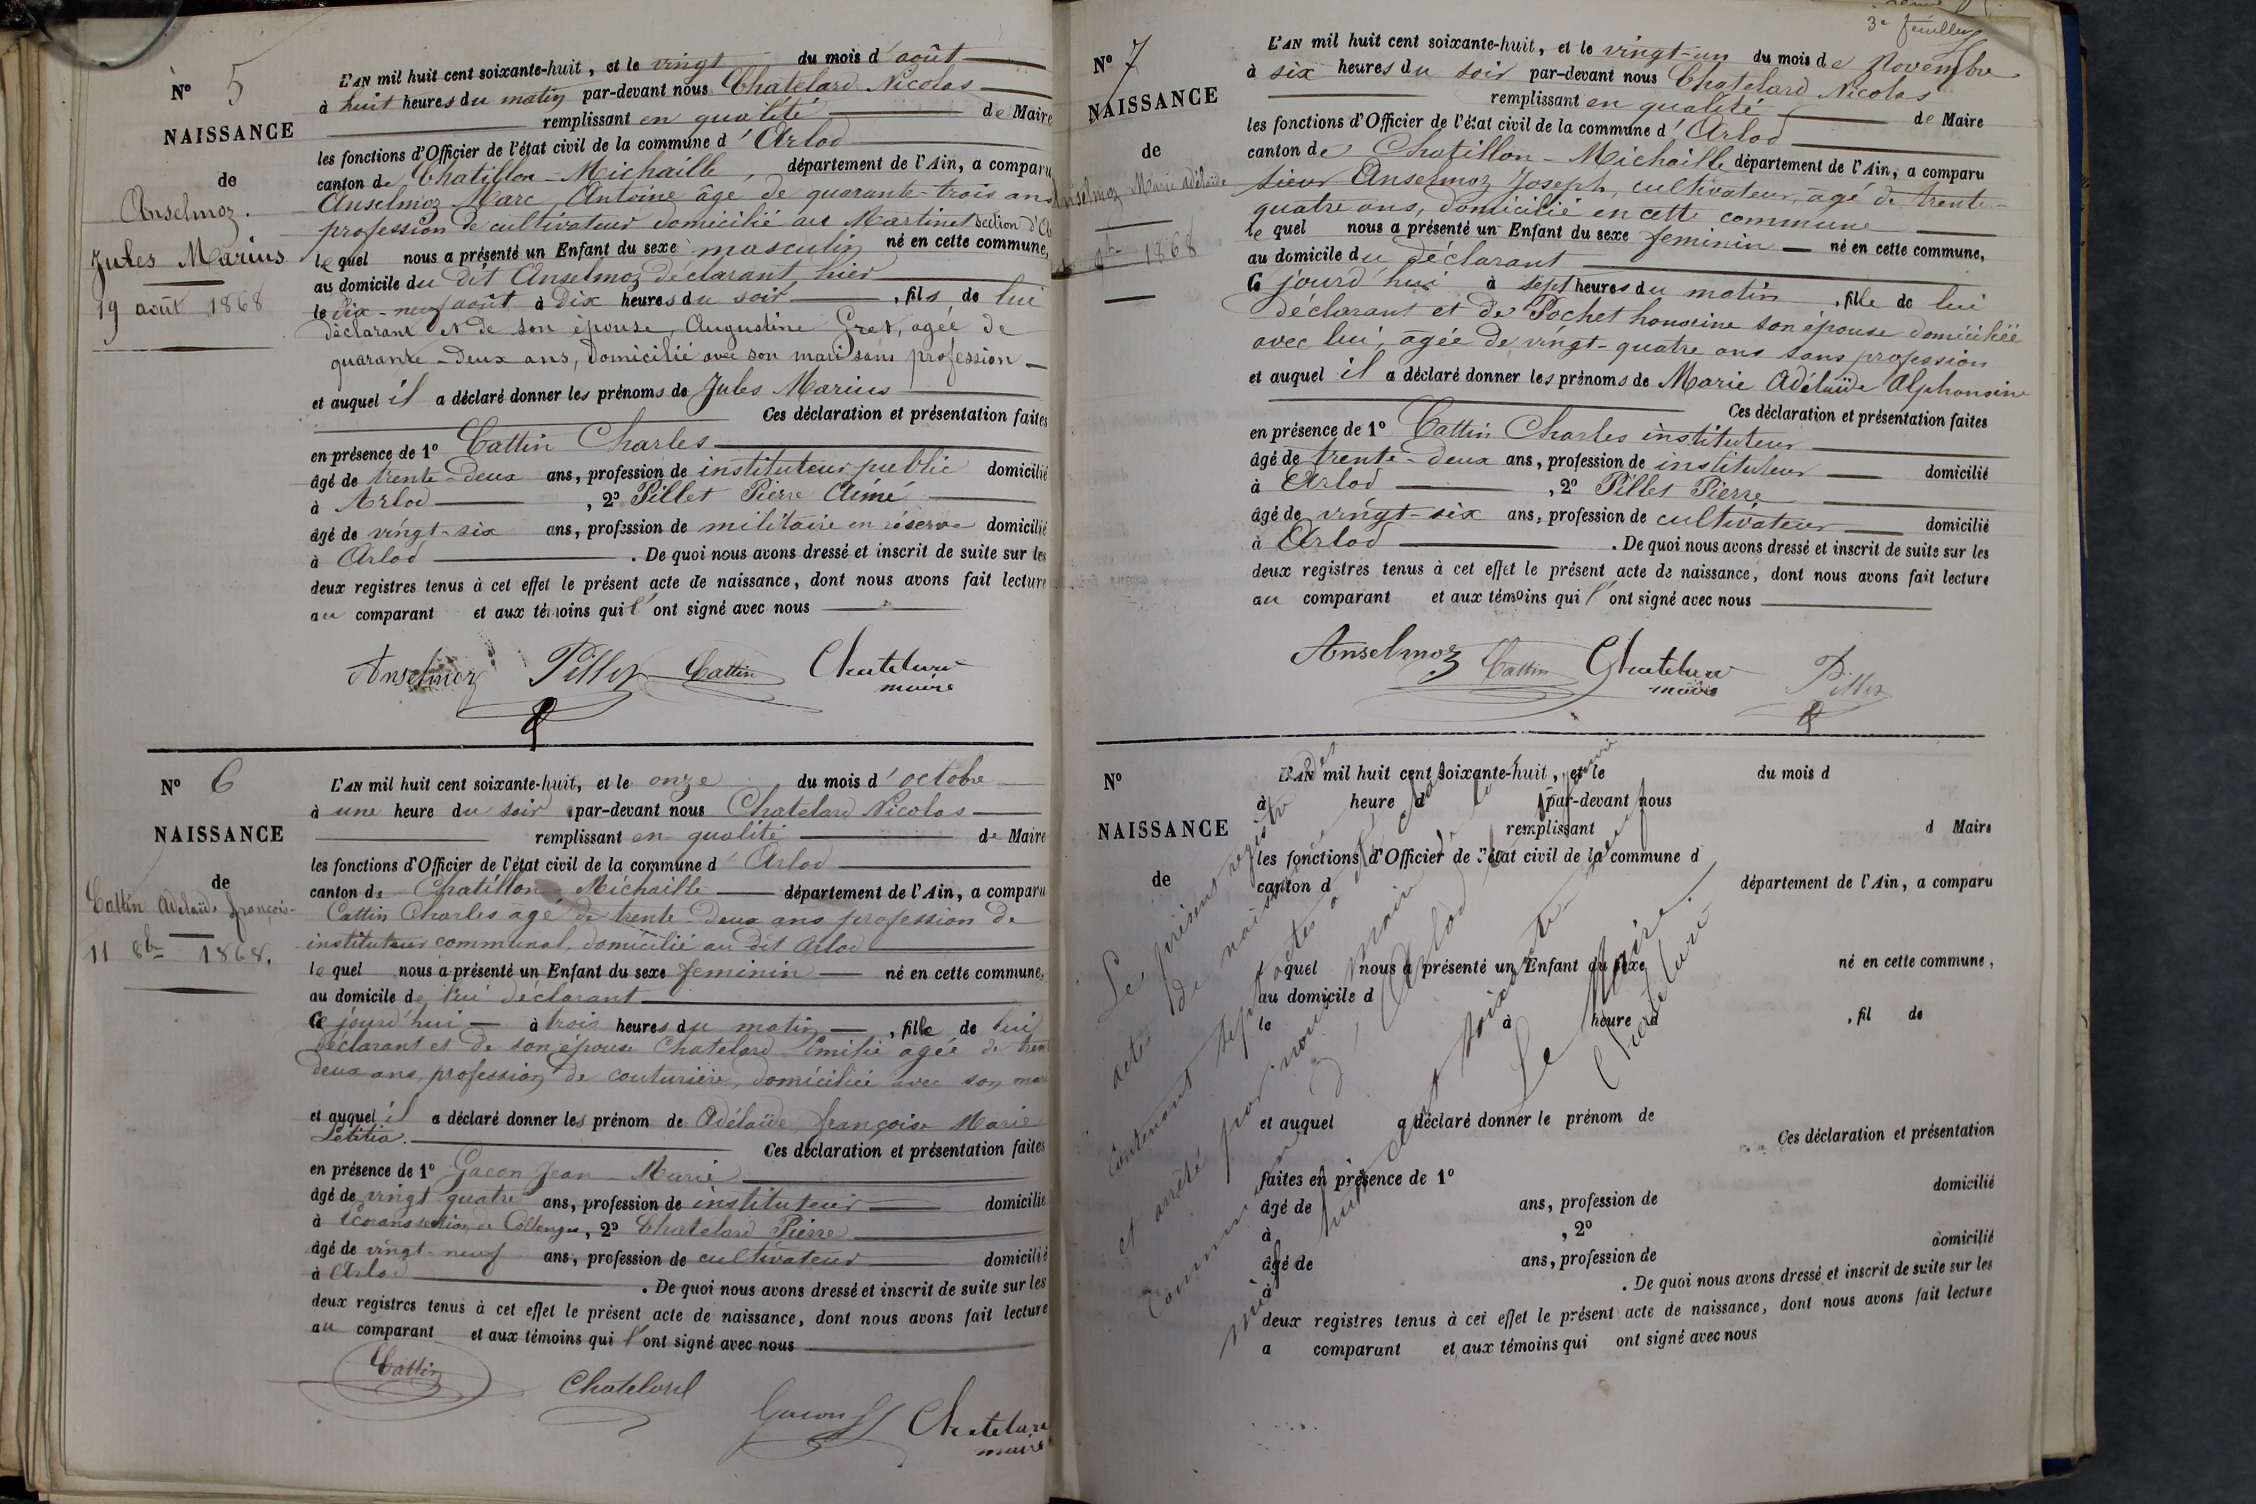 N° 5
NAISSANCE
de
Anselmoz.
Jules Marius
19 août 1868
L'AN mil huit cent soixante-huit, et le vingt du mois d'août
à huit heures du matin par-devant nous Chatelard Nicolas
remplissant en qualité de Maire
les fonctions d'Officier de l'état civil de la commune d'Arlod
canton de Chatillon-Michaille, département de l'Ain, a comparu
Anselmoz Marc Antoine âgé de quarante-trois ans
profession de cultivateur domicilié au Martinet section d'
lequel nous a présenté un Enfant du sexe masculin né en cette commune,
au domicile du dit Anselmoz déclarant, hier
le dix-neuf août à dix heures du soir, fils de lui
déclarant et de son épouse, Augustine Gret, agée de
quarante-deux ans, domicilié avec son mari sans profession
et auquel il a déclaré donner les prénoms de Jules Marius
Ces déclaration et présentation faites
en présence de 1° Cattin Charles
âgé de trente-deux ans, profession de instituteur public domicilié
à Arlod, 2° Pillet Pierre Aimé
âgé de vingt-six ans, profession de militaire en réserve domicilié
à Arlod. De quoi nous avons dressé et inscrit de suite sur les
deux registres tenus à cet effet le présent acte de naissance, dont nous avons fait lecture
au comparant et aux témoins qui l'ont signé avec nous
Anselmoz Pillet Cattin Chatelard
maire
N° 6
NAISSANCE
de
Cattin Adelaïde françoise
11 8bre 1868.
L'AN mil huit cent soixante-huit, et le onze du mois d'octobre
à une heure du soir par-devant nous Chatelard Nicolas
remplissant en qualité de Maire
les fonctions d'Officier de l'état civil de la commune d'Arlod
canton de Chatillon-Michaille département de l'Ain, a comparu
Cattin Charles âgé de trente-deux ans profession de
instituteur communal, domicilié au dit Arlod
lequel nous a présenté un Enfant du sexe feminin né en cette commune,
au domicile de lui déclarant
Ce jourd'hui à trois heures du matin, fille de lui
déclarant et de son épouse Chatelard Emilie agée de trente
deux ans, profession de couturière, domiciliée avec son mari
et auquel il a déclaré donner les prénom de Adélaïde, françoise Marie
Létitia. Ces déclaration et présentation faites
en présence de 1° Gacon Jean-Marie
âgé de vingt quatre ans, profession de instituteur domicilié
à Ecorans section de Collonges, 2° Chatelard Pierre
âgé de vingt-neuf ans, profession de cultivateur domicilié
à Arlod. De quoi nous avons dressé et inscrit de suite sur les
deux registres tenus à cet effet le présent acte de naissance, dont nous avons fait lecture
au comparant et aux témoins qui l'ont signé avec nous
Cattin Chatelard Gacon Chatelard
maire
3e feuillet
N° 7
NAISSANCE
de
Anselmoz Marie Adélaïde
1868
L'AN mil huit cent soixante-huit, et le vingt-un du mois de Novembre
à six heures du soir par-devant nous Chatelard Nicolas
remplissant en qualité de Maire
les fonctions d'Officier de l'état civil de la commune d'Arlod
canton de Chatillon-Michaille département de l'Ain, a comparu
sieur Anselmoz Joseph, cultivateur, âgé de trente-
quatre ans, domicilié en cette commune
lequel nous a présenté un Enfant du sexe feminin né en cette commune,
au domicile du déclarant
Ce jourd'hui à sept heures du matin, fille de lui
déclarant et de Pochet honorine son épouse domiciliée
avec lui, agée de vingt-quatre ans sans profession
et auquel il a déclaré donner les prénoms de Marie Adélaïde Alphonsine
Ces déclaration et présentation faites
en présence de 1° Cattin Charles instituteur
âgé de trente-deux ans, profession de instituteur domicilié
à Arlod, 2° Pillet Pierre
âgé de vingt-six ans, profession de cultivateur domicilié
à Arlod. De quoi nous avons dressé et inscrit de suite sur les
deux registres tenus à cet effet le présent acte de naissance, dont nous avons fait lecture
au comparant et aux témoins qui l'ont signé avec nous
Anselmoz Cattin Chatelard Pillet
maire
N°
NAISSANCE
de
L'AN mil huit cent soixante-huit, et le du mois d
à heure d par-devant nous
remplissant d Maire
les fonctions d'Officier de l'état civil de la commune d
canton d département de l'Ain, a comparu
l quel nous a présenté un Enfant du sexe né en cette commune,
au domicile d
le à heure d, fil de
et auquel a déclaré donner le prénom de
Ces déclaration et présentation
faites en présence de 1°
âgé de ans, profession de domicilié
à, 2°
âgé de ans, profession de domicilié
à. De quoi nous avons dressé et inscrit de suite sur les
deux registres tenus à cet effet le présent acte de naissance, dont nous avons fait lecture
a comparant et aux témoins qui ont signé avec nous
Le présent registre des
actes de naissance
contenant sept actes a été clos
et arrêté par nous Maire de la
Commune d'Arlod
mil huit cent soixante-neuf
Le Maire.
Chatelard